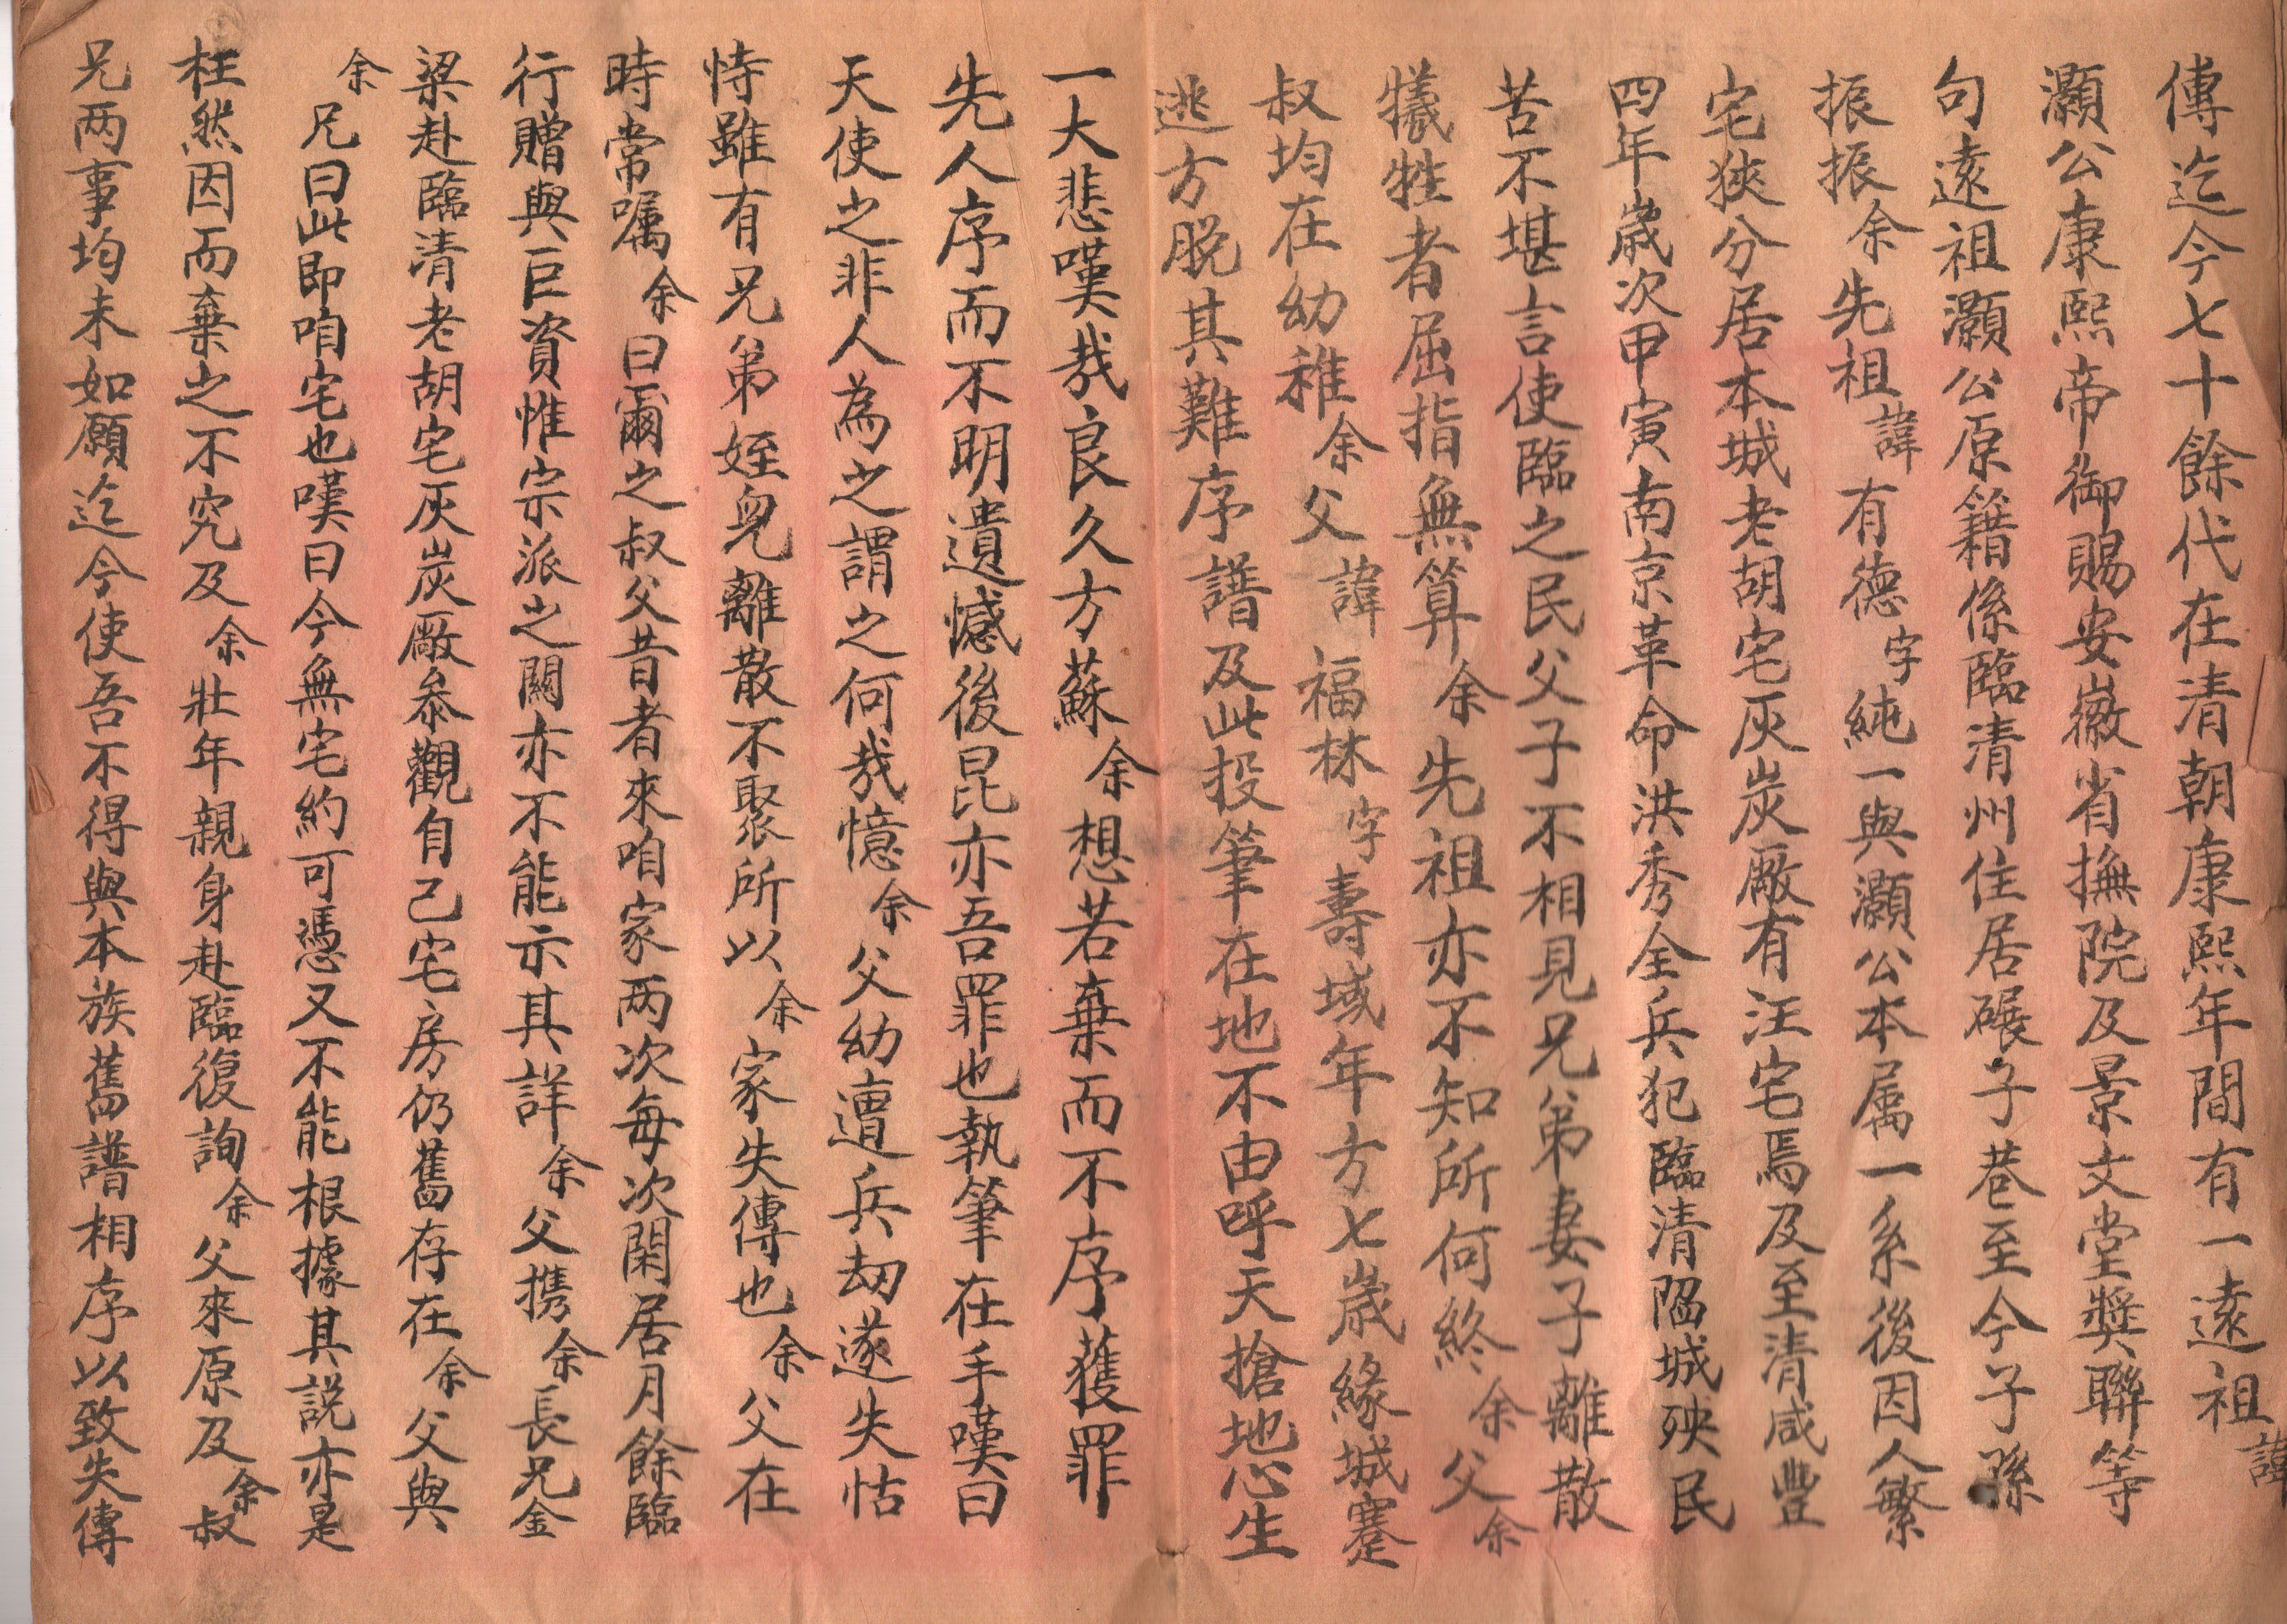 傳迄今七十餘代在清朝康熙年間有一遠祖諱
灝公康熙帝御賜安徽省撫院及景文堂獎聯等
句遠祖灝公原籍係臨清州住居碾子巷至今子孫
振振余先祖諱有德字純一與灝公本属一系後因人繁
宅狹分居本城老胡宅灰炭廠有汪宅焉及至清咸豐
四年歲次甲寅南京革命洪秀全兵犯臨清陷城殃民
苦不堪言使臨之民父子不相見兄弟妻子離散
犧牲者屈指無算余先祖亦不知所何終余父余
叔均在幼稚余父諱福林字壽域年方七歲緣城蹇
逃方脱其難序譜及此投筆在地不由呼天搶地心生
一大悲嘆哉良久方蘇余想若棄而不序獲罪
先人序而不明遺憾後昆亦吾罪也執筆在手嘆曰
天使之非人為之謂之何哉憶余父幼遭兵刼遂失怙
恃雖有兄弟姪兒離散不聚所以余家失傳也余父在
時常嘱余曰爾之叔父昔者來咱家两次每次閑居月餘臨
行贈與巨資惟宗派之關亦不能示其詳余父携余長兄金
梁赴臨清老胡宅灰炭廠叅觀自己宅房仍舊存在余父與
余兄曰此即咱宅也嘆曰今無宅約可憑又不能根據其説亦是
枉然因而棄之不究及余壯年親身赴臨復詢余父來原及余叔
兄两事均未如願迄今使吾不得與本族舊譜相序以致失傳